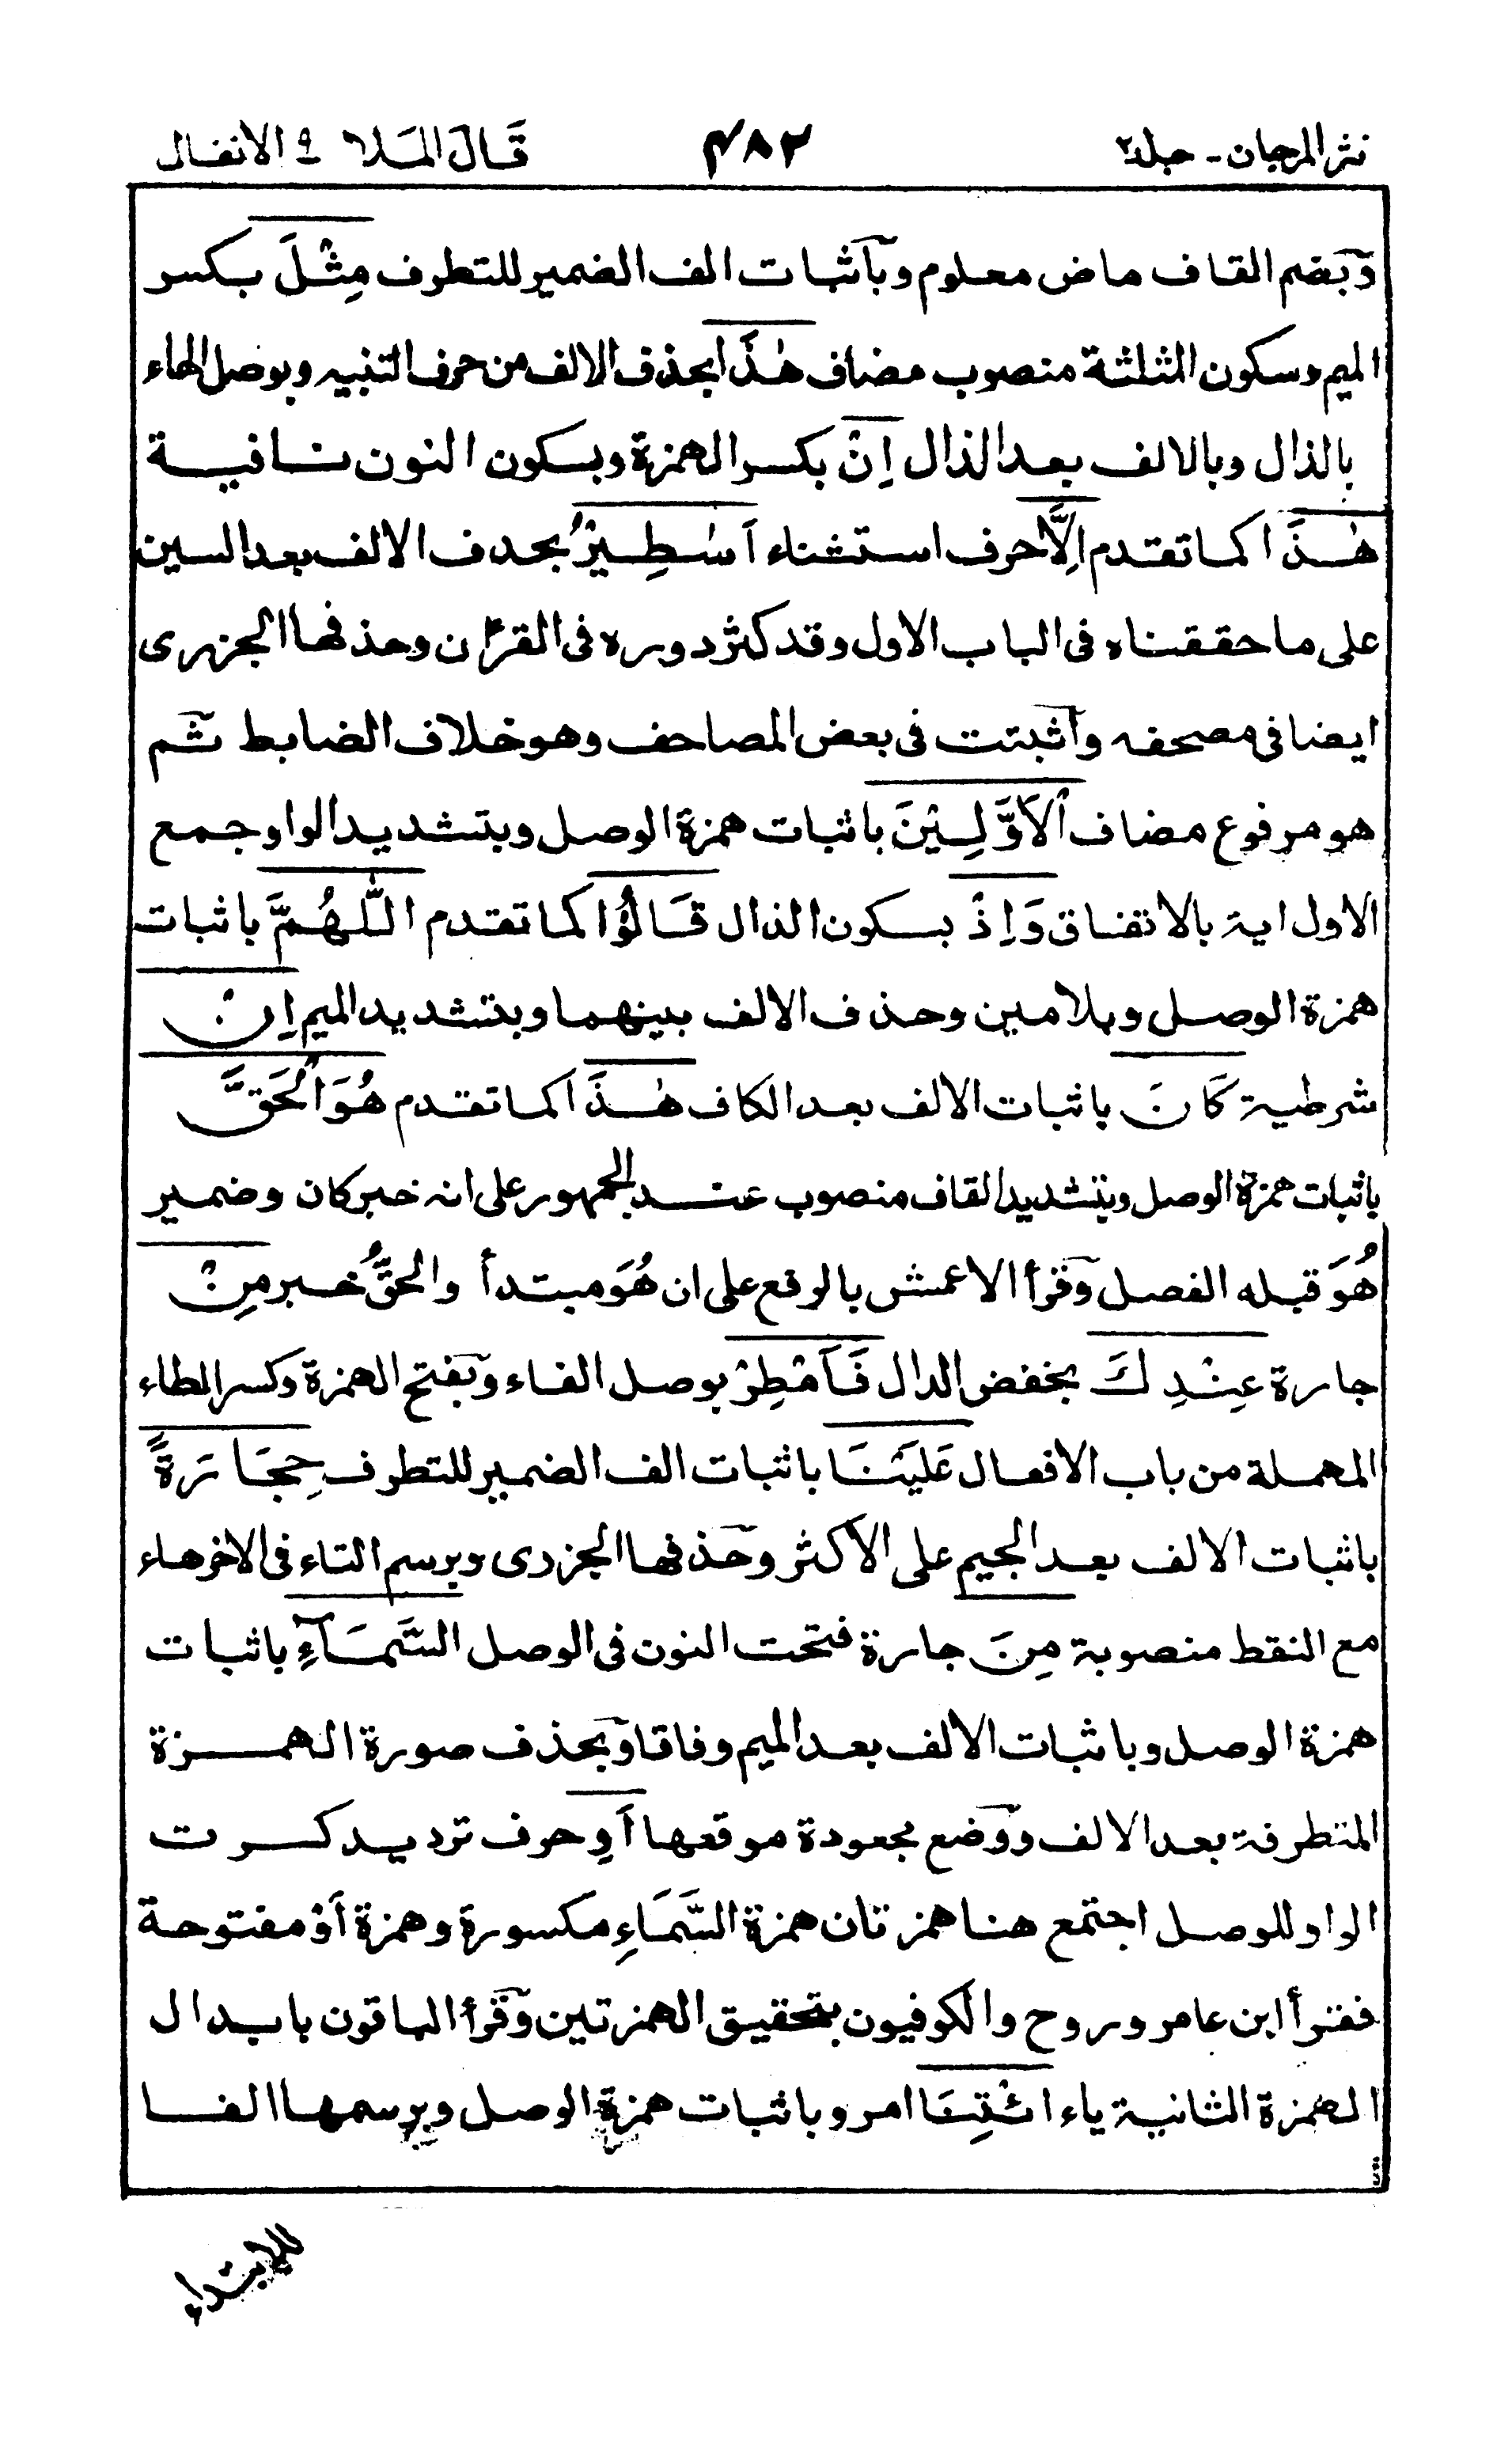 نثر المرجان - جلد٢ ٤٨٢ قَالَ المَلَا ٩ الانفال
وبضم القاف ماض معلوم وبآثبات الف الضمير للتطرف مِثْلَ بكسر
الميم وسكون المثلثة منصوب مضاف هٰذَا بحذف الالف من حرف التنبيه وبوصل الهاء
بالذال وبالالف بعد الذال اِنْ بكسر الهمزة وبسكون النون نافية
هٰذَا كما تقدم اِلَّا حرف استثناء اَسٰطِيْرُ بحذف الالف بعد السين
على ما حققناه فى الباب الاول وقد كثر دوره فى القرآن وحذفها الجزرى
ايضا فى مصحفه وآثبتت فى بعض المصاحف وهو خلاف الضابط ثم
هو مرفوع مضاف اَلْاَوَّلِيْنَ باثبات همزة الوصل وبتشديد الواو جمع
الاول اية بالاتفاق وَاِذْ بسكون الذال قَالُوْا كما تقدم اللّٰهُمَّ باثبات
همزة الوصل وبلامين وحذف الالف بينهما وبتشديد الميم اِنْ
شرطية كَانَ باثبات الالف بعد الكاف هٰذَا كما تقدم هُوَ الْحَقَّ
باثبات همزة الوصل وبتشديد القاف منصوب عند الجمهور على انه خبر كان وضمير
هُوَ قبله الفصل وقرأ الاعمش بالرفع على ان هُوَ مبتدأ والحقُّ خبر مِنْ
جارة عِنْدِكَ بخفض الدال فَاَمْطِرْ بوصل الفاء وبفتح الهمزة وكسر الطاء
المهملة من باب الافعال عَلَيْنَا باثبات الف الضمير للتطرف حِجَارَةً
باثبات الالف بعد الجيم على الاكثر وحذفها الجزرى وبرسم التاء فى الاخر هاء
مع النقط منصوبة مِنَ جارة فتحت النون فى الوصل السَّمَآءِ باثبات
همزة الوصل وباثبات الالف بعد الميم وفاقا وبحذف صورة الهمزة
المتطرفة بعد الالف ووضع مجعودة موقعها اَوِ حرف ترديد كسرت
الواو للوصل اجتمع هنا همزتان همزة السَّمَاءِ مكسورة وهمزة اَوْ مفتوحة
فقرأ ابن عامر وروح والكوفيون بتحقيق الهمزتين وقرأ الباقون بابدال
الهمزة الثانية ياء ائْتِنَا امر وباثبات همزة الوصل وبرسمها الفا
للابتداء